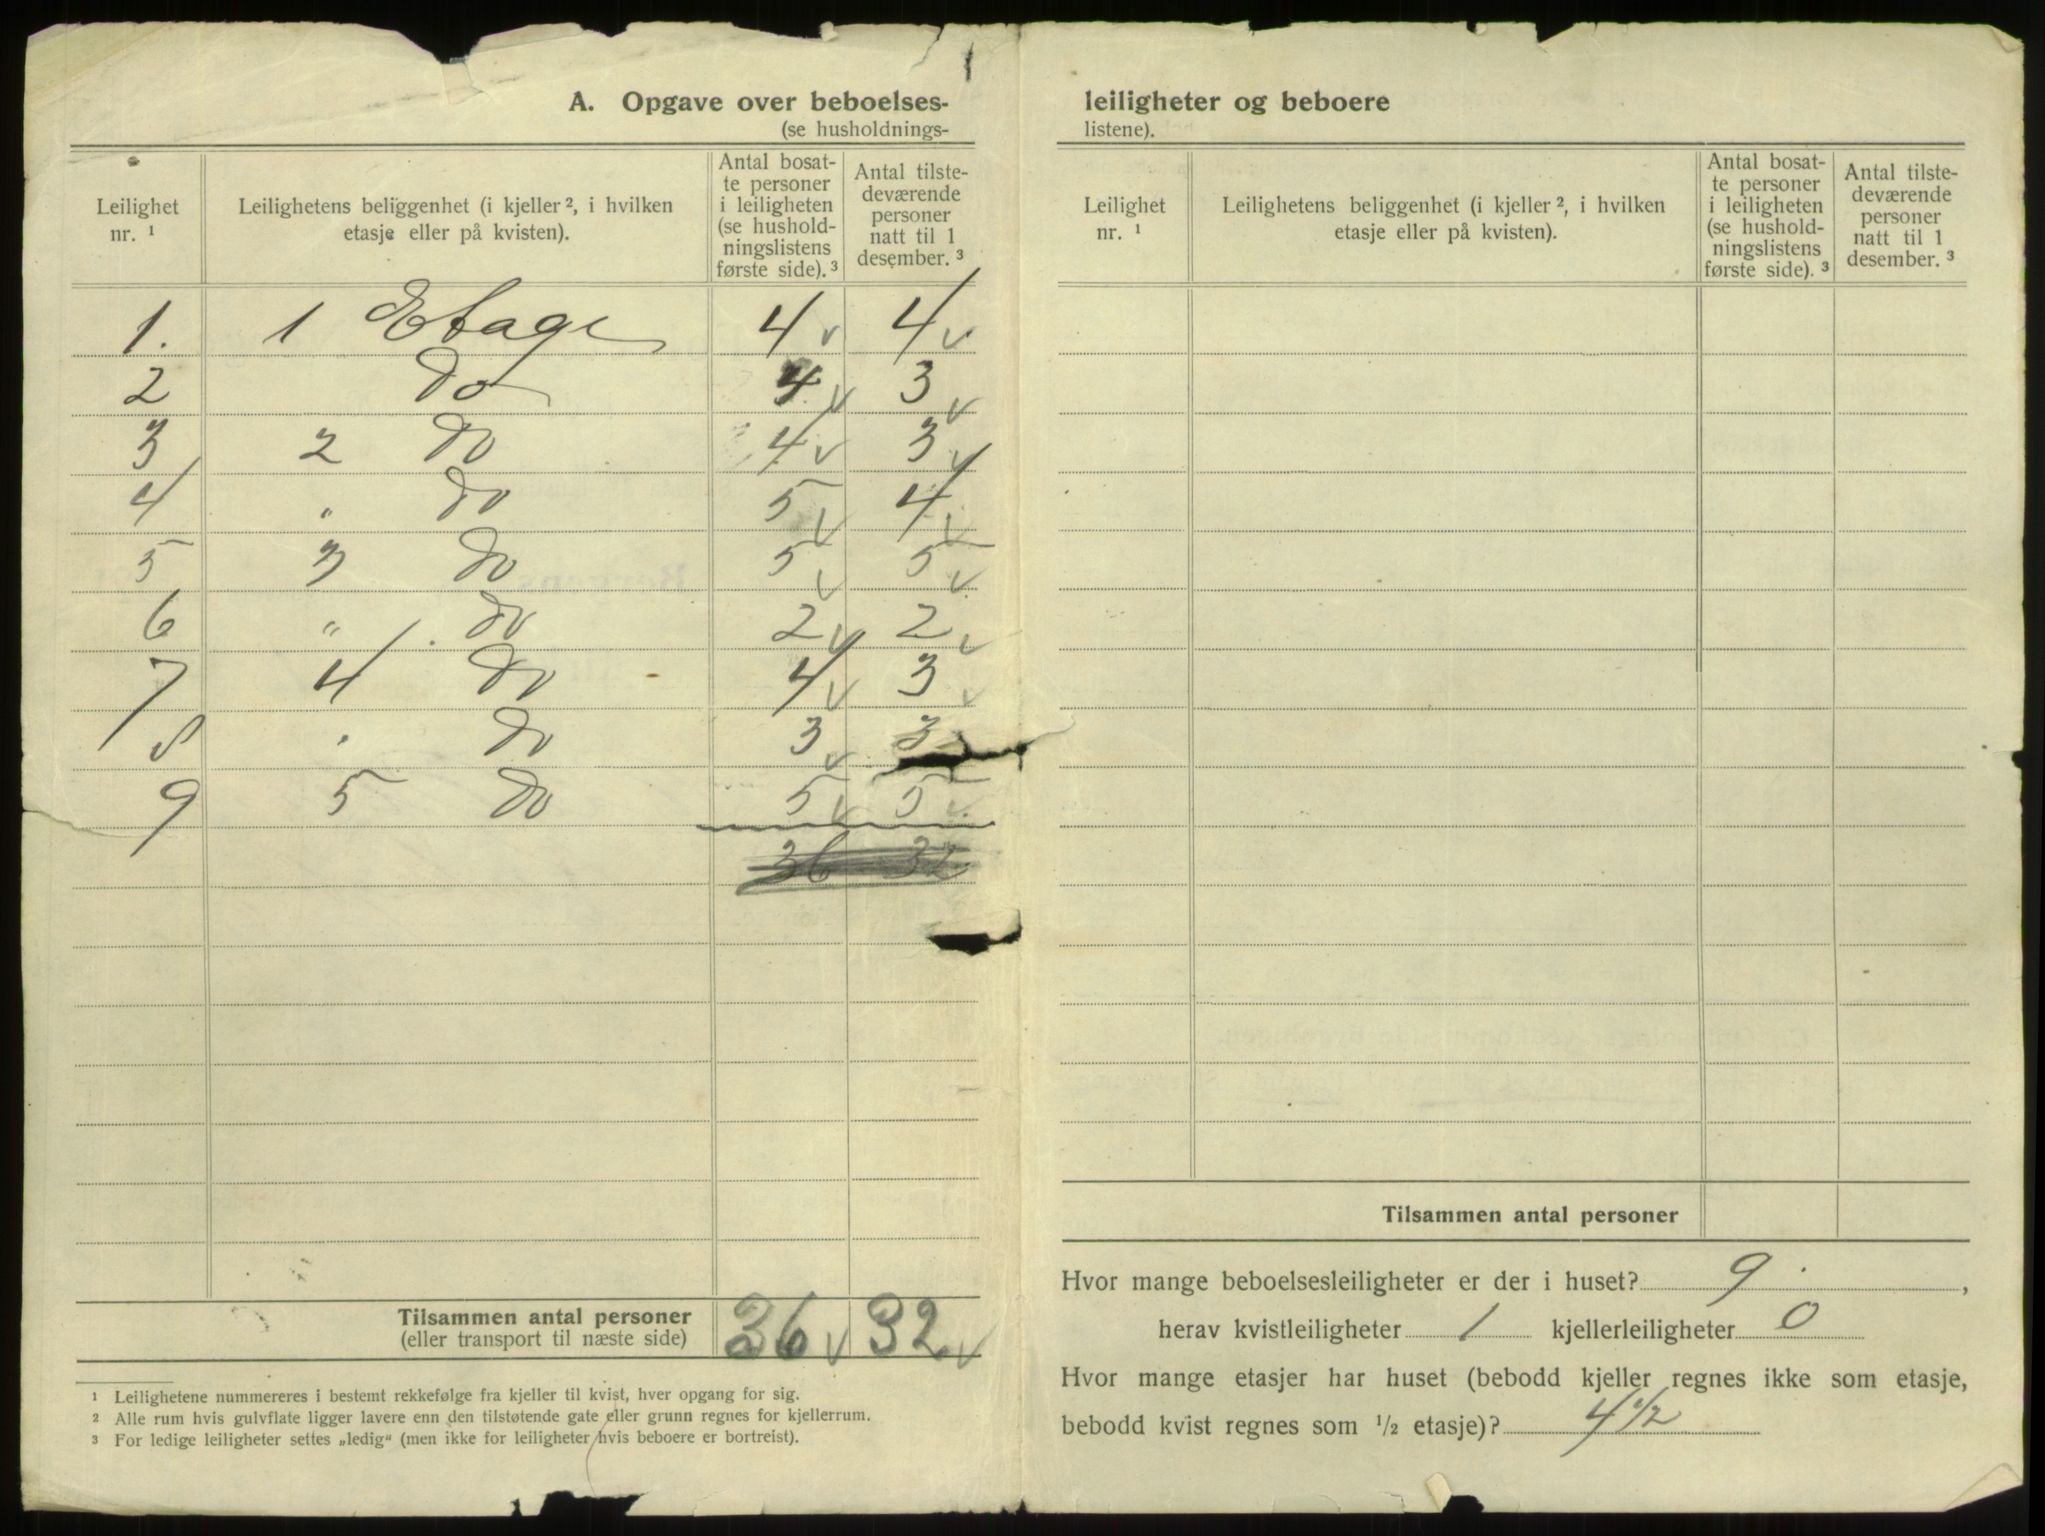 A. Opgave over beboelses-
(se husholdnings-
Leilighet nr. ¹
Leilighetens beliggenhet (i kjeller ², i hvilken etasje eller på kvisten).
Antal bosat-
te personer
i leiligheten
(se hushold-
ningslistens
første side). ³
Antal tilste-
deværende
personer
natt til 1
desember. ³
1. 1 Etage 4 v 4 v
2 do 4 v 3 v
3 2 do 4 v 3 v
4 " do 5 v 4 v
5 3 do 5 v 5 v
6 " do 2 v 2 v
7 4 do 4 v 3 v
8 " do 3 v 3 v
9 5 do 5 v 5 v
36 32
Tilsammen antal personer 36 v 32 v
(eller transport til næste side)
¹ Leilighetene nummereres i bestemt rekkefølge fra kjeller til kvist, hver opgang for sig.
² Alle rum hvis gulvflate ligger lavere enn den tilstøtende gate eller grunn regnes for kjellerrum.
³ For ledige leiligheter settes „ledig“ (men ikke for leiligheter hvis beboere er bortreist).
leiligheter og beboere
listene).
Leilighet nr. ¹
Leilighetens beliggenhet (i kjeller ², i hvilken etasje eller på kvisten).
Antal bosat-
te personer
i leiligheten
(se hushold-
ningslistens
første side). ³
Antal tilste-
deværende
personer
natt til 1
desember. ³
Tilsammen antal personer
Hvor mange beboelsesleiligheter er der i huset? 9. ,
herav kvistleiligheter 1 kjellerleiligheter 0
Hvor mange etasjer har huset (bebodd kjeller regnes ikke som etasje,
bebodd kvist regnes som ½ etasje)? 4½